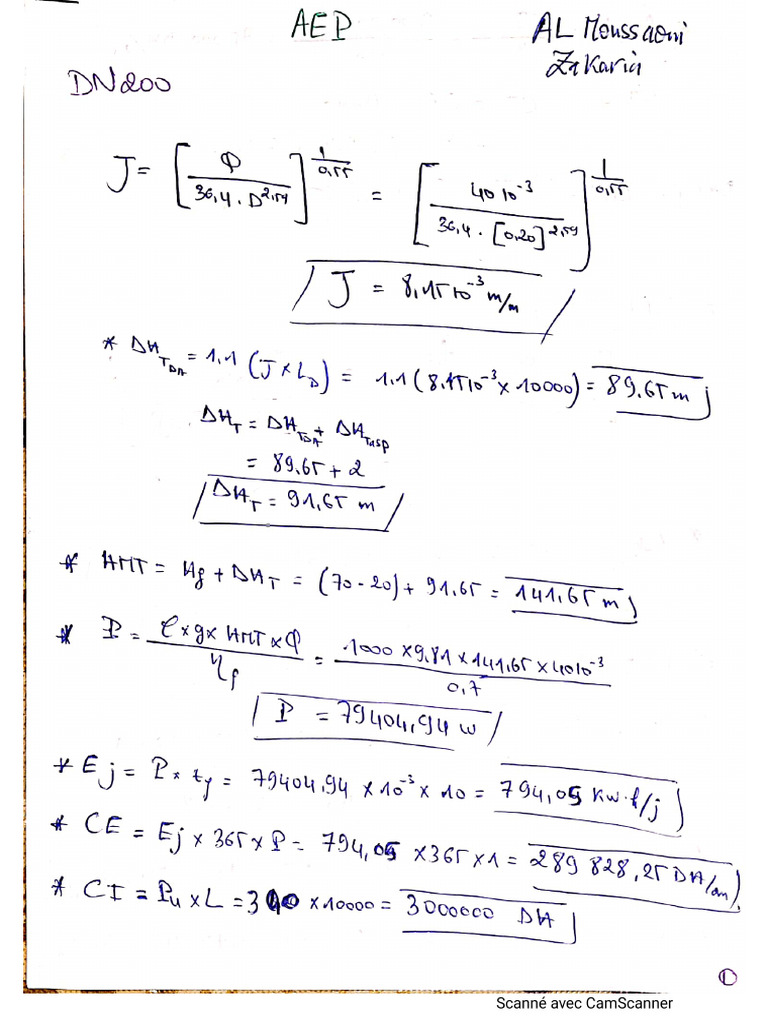 AEP
AL Moussaoui
Zakaria
DN200
J = [Φ / 36,4 · D^2,59]^(1/0,55) = [40 10^-3 / 36,4 · [0,20]^2,59]^(1/0,55)
J = 8,15 10^-3 m/m
* ΔH_TDA = 1,1 (J × L_D) = 1,1 (8,15 10^-3 × 10000) = 89,65 m
ΔH_T = ΔH_TDA + ΔH_Tasp
= 89,65 + 2
ΔH_T = 91,65 m
* HMT = Hg + ΔH_T = (70 - 20) + 91,65 = 141,65 m
* P = ρ × g × HMT × Φ / η_p = 1000 × 9,81 × 141,65 × 40 10^-3 / 0,7
P = 79404,94 w
* Ej = P × tj = 79404,94 × 10^-3 × 10 = 794,05 Kw·h/j
* CE = Ej × 365 × P = 794,05 × 365 × 1 = 289 828,25 DH/an
* CI = Pu × L = 300 × 10000 = 3000000 DH
1
Scanné avec CamScanner